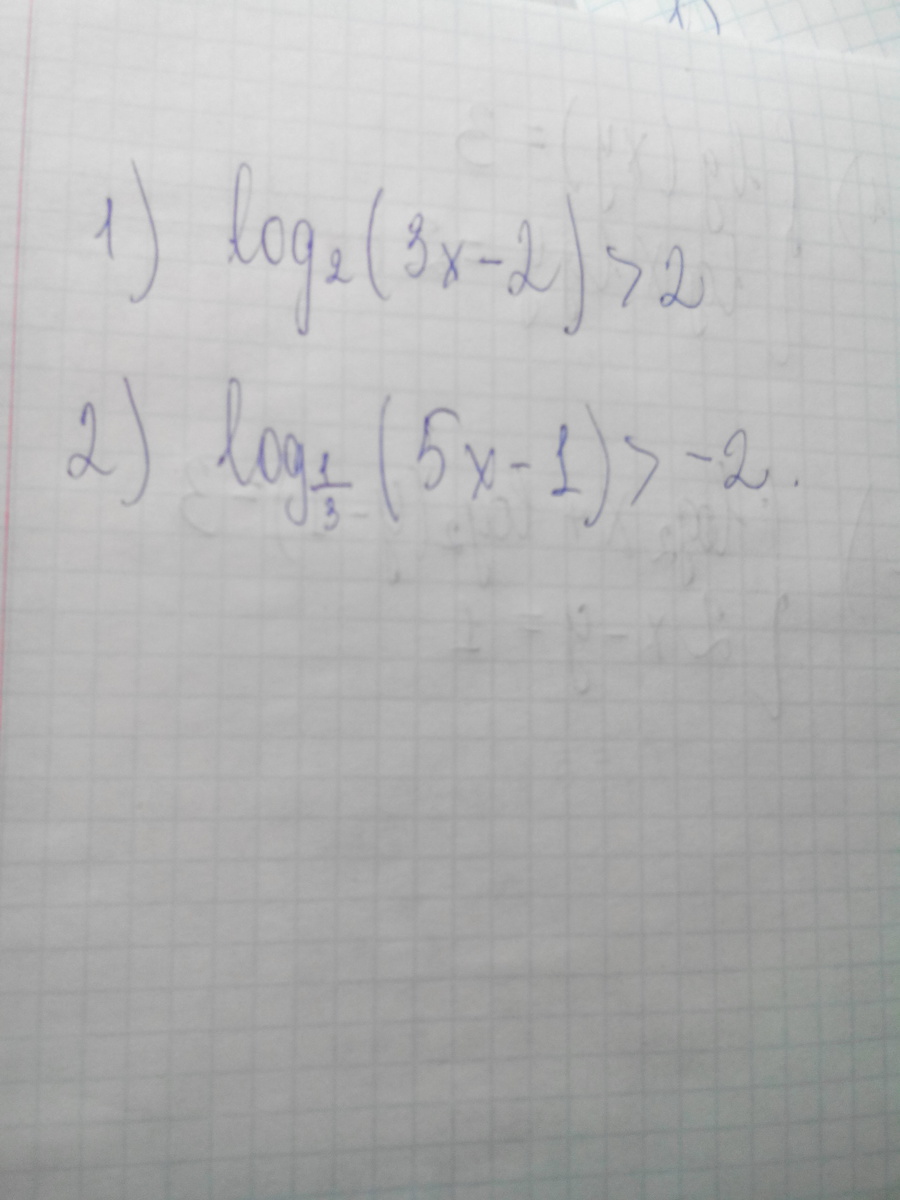 1) log₂(3x-2)>2
2) log_{1/3}(5x-1)>-2.